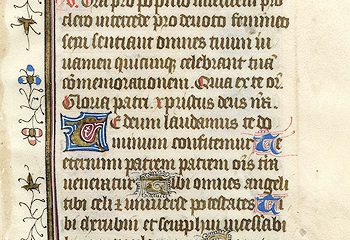 Ora pro populo interveni pro
clero intercede pro devoto femineo
sexu sentiant omnes tuum iu
uamen quicumq; celebrant tuā
commemorationem. Q̄uia ex te or̄.
Gloria patri. xpristus deus nr̄a.
Te deum laudamus te do
minum confitemur Te
eternum patrem patrem oīs tr̄a
veneratur Tibi omnes angeli
tibi celi ⁊ universe potestates Ti
bi cherubin et seraphin incessabi